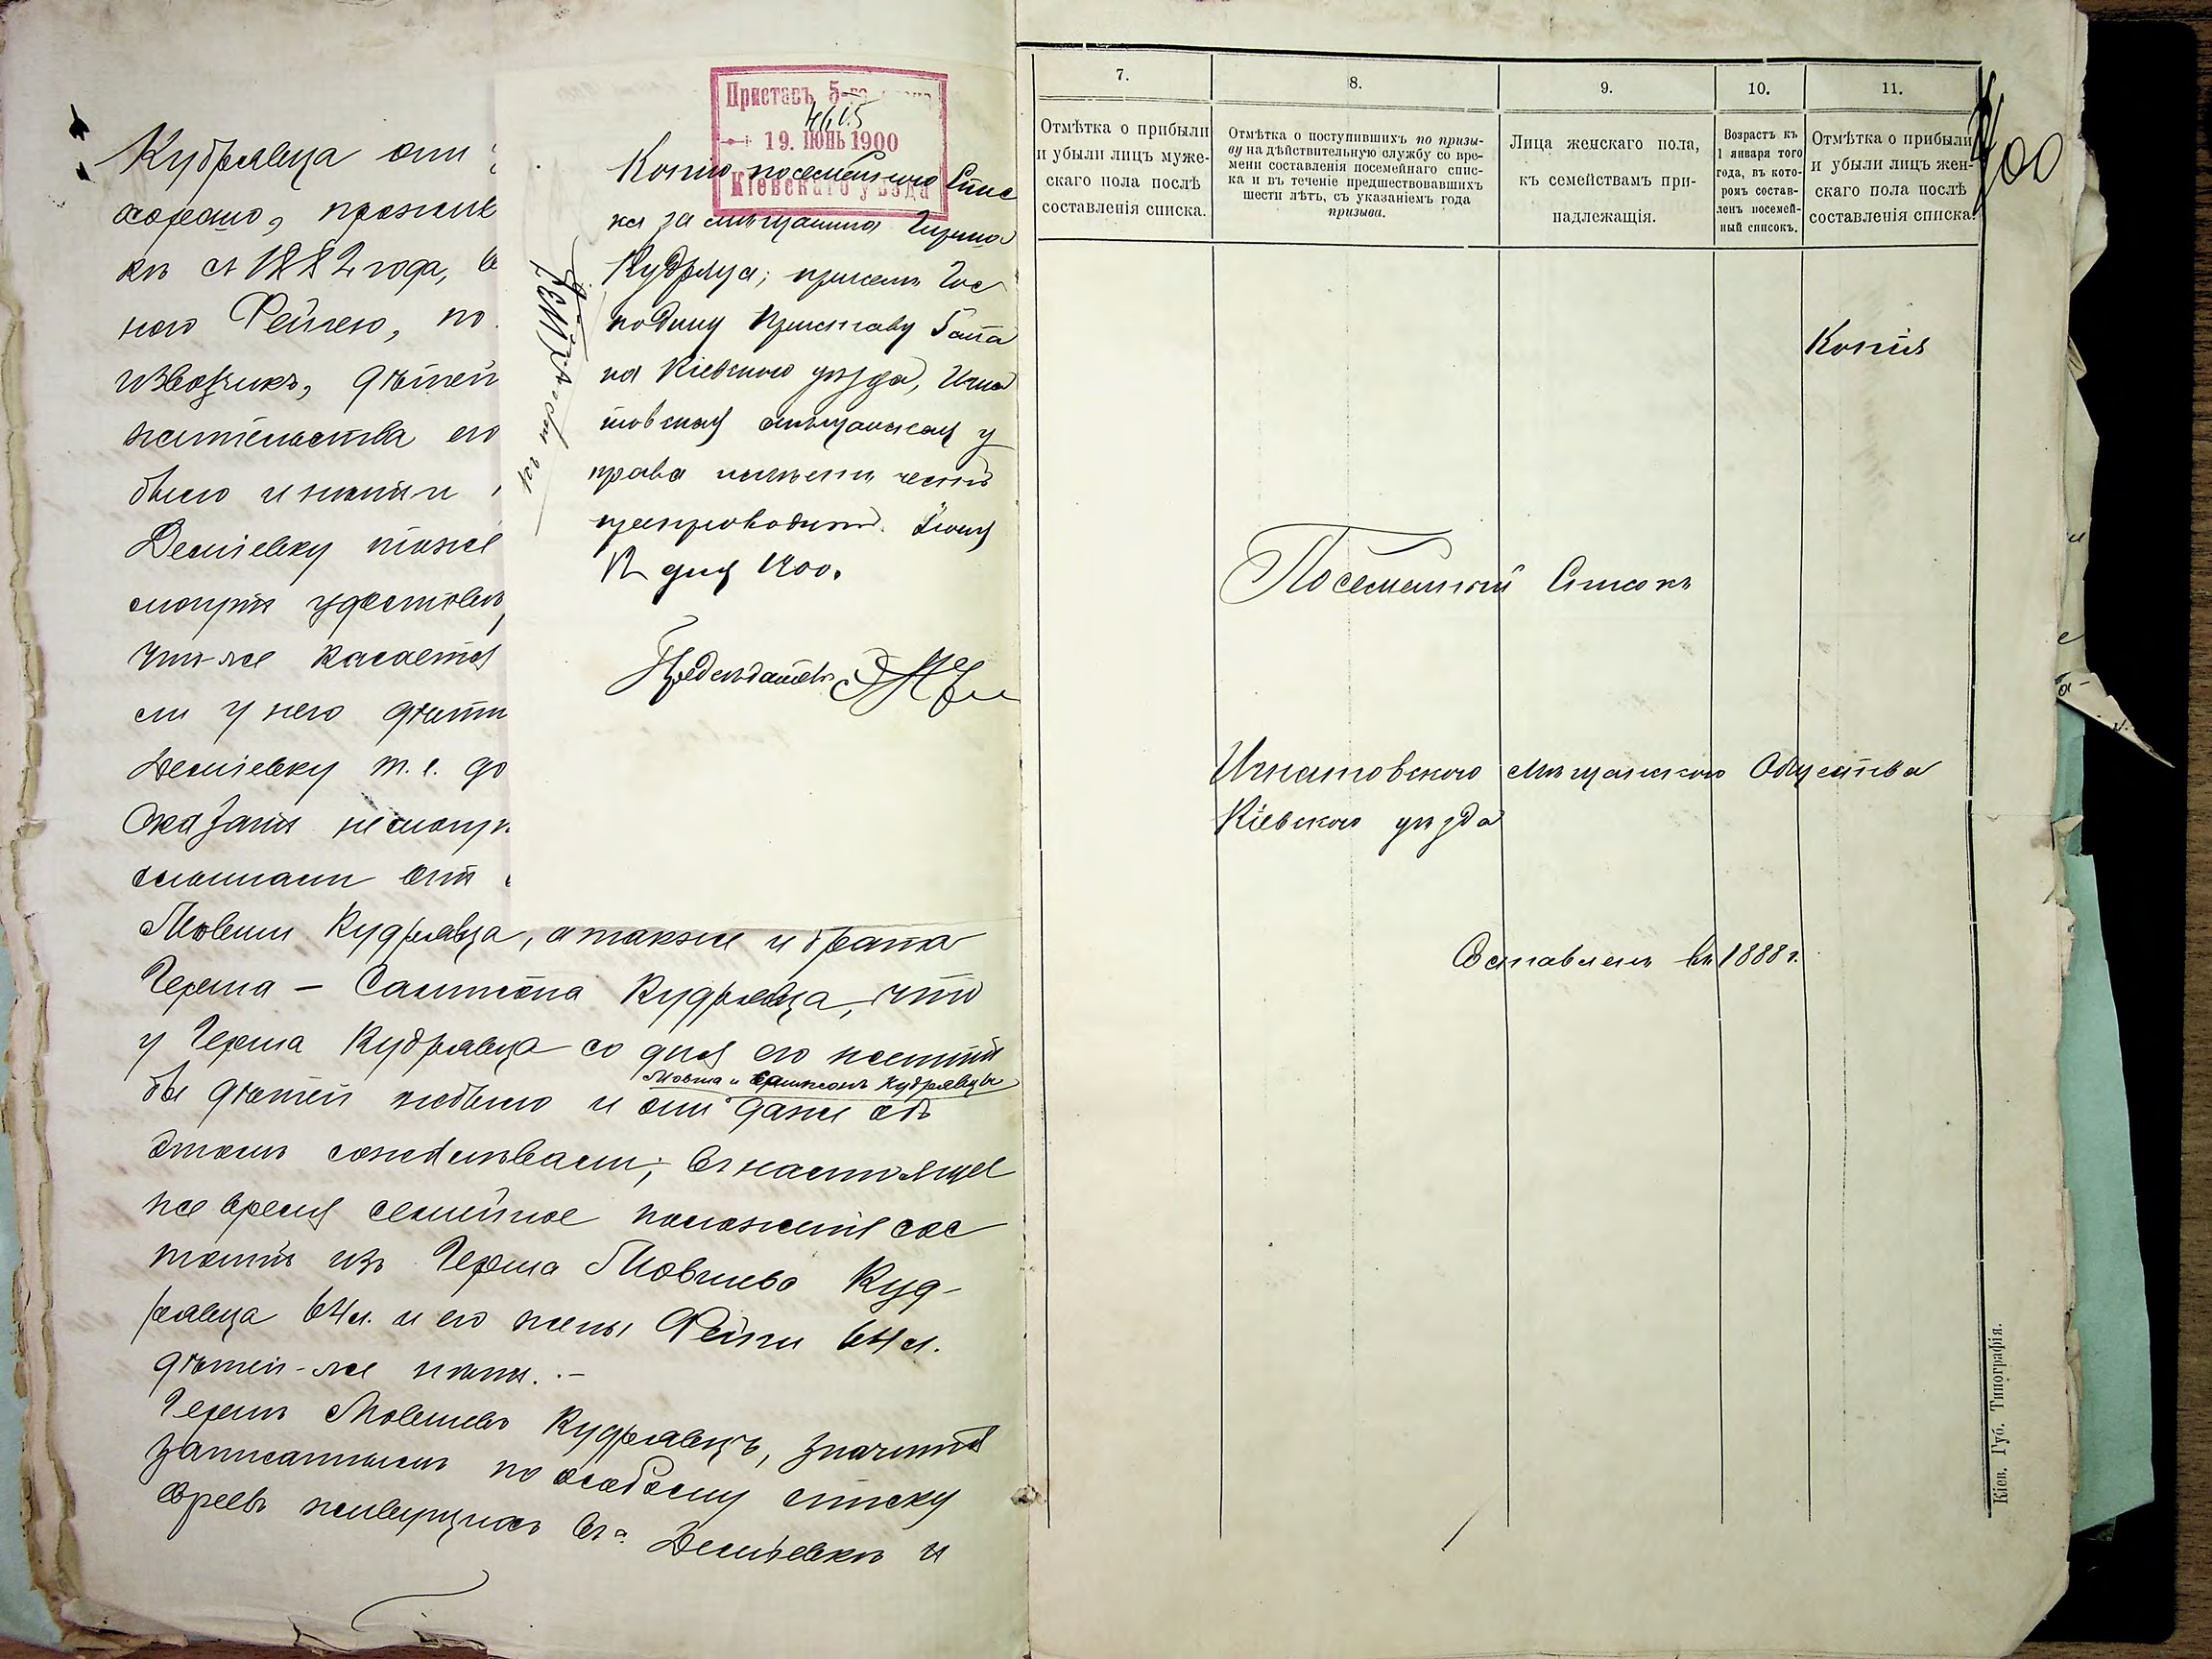 Кудрявца они
хорошо, прожив
къ съ 1882 года, в
ного Фейгею, по
извозчикъ, дѣтей
жительства его
было и нынѣ и
Деміевку тоже
смотря удостовѣ
Что-же касается
ли у него дѣти
Деміевку т. е. до
сказать несмотр
слыхали отъ
Мовши Кудрявца, а также и брата
Герша - Самсона Кудрявца, что
у Герша Кудрявца со дня его женить
бы дѣтей небыло и они даже объ
Мовша и Самсонъ Кудрявцы
этомъ сожалѣвали; въ настоящее
же время семейное положеніе сос
тоитъ изъ Герша Мовшева Куд-
рявца 64 л. и его жены Фейги 64 л.
дѣтей-же нѣтъ. -
Гершъ Мовшевъ Кудрявецъ, значится
записаннымъ по особому списку
евреевъ живущихъ въ д. Деміевкѣ и
Приставъ 5-го
4615
19. ІЮНЬ 1900
Кіевскаго уѣзда
Копію посемейнаго Спис
ка за мѣщанина Герша
Кудряца, при семъ Гос
подину Приставу 5 ста
на Кіевского уѣзда, Игна
товская мѣщанская у
права имѣетъ честь
препроводить. Іюня
12 дня 1900.
Предсѣдатель
7.
8.
9.
10.
11.
Отмѣтка о прибыли
и убыли лицъ муже-
скаго пола послѣ
составленія списка.
Отмѣтка о поступившихъ по призы-
ву на дѣйствительную службу со вре-
мени составленія посемейнаго спис-
ка и въ теченіе предшествовавшихъ
шести лѣтъ, съ указаніемъ года
призыва.
Лица женскаго пола,
къ семействамъ при-
надлежащія.
Возрастъ къ
1 января того
года, въ кото-
ромъ состав-
ленъ посемей-
ный списокъ.
Отмѣтка о прибыли
и убыли лицъ жен-
скаго пола послѣ
составленія списка.
Копія
Посемейный Списокъ
Игнатовского мѣщанского Общества
Кіевского уѣзда
Составленъ въ 1888 г.
Кіев. Губ. Типографія.